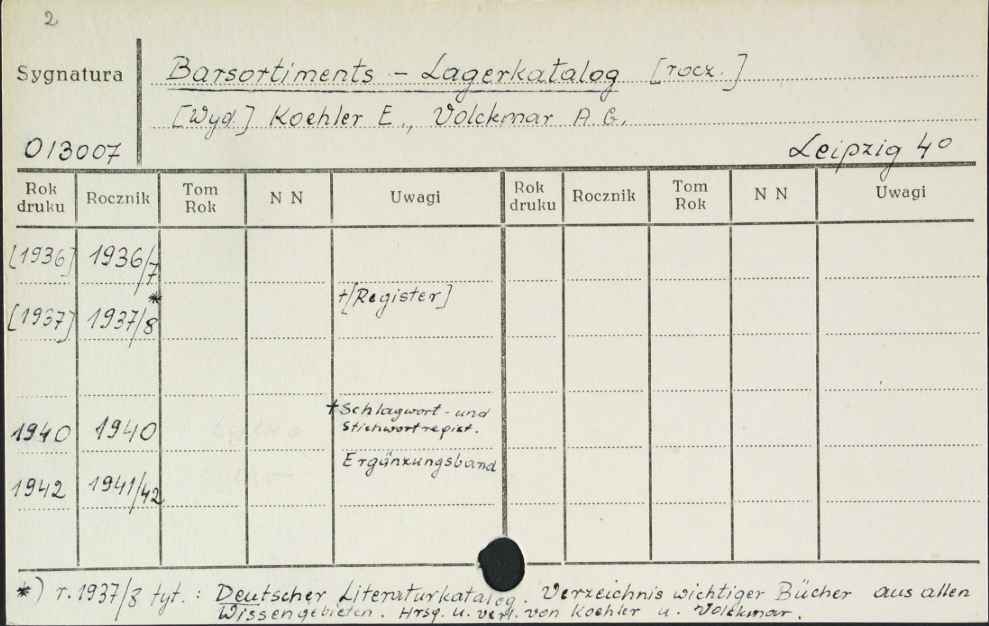 2
Sygnatura
Barsortiments - Lagerkatalog [rocz.]
[Wyd] Koehler E., Volckmar A.G.
013007
Leipzig 4°
Rok druku Rocznik Tom Rok N N Uwagi Rok druku Rocznik Tom Rok N N Uwagi
[1936] 1936/7
[1937] 1937/8* +[Register]
1940 1940 +Schlagwort- und
Stichwortregist.
1942 1941/42 Ergänzungsband
*) r. 1937/8 tyt.: Deutscher Literaturkatalog. Verzeichnis wichtiger Bücher aus allen
Wissengebieten. Hrsg. u. verl. von Koehler u. Volckmar.